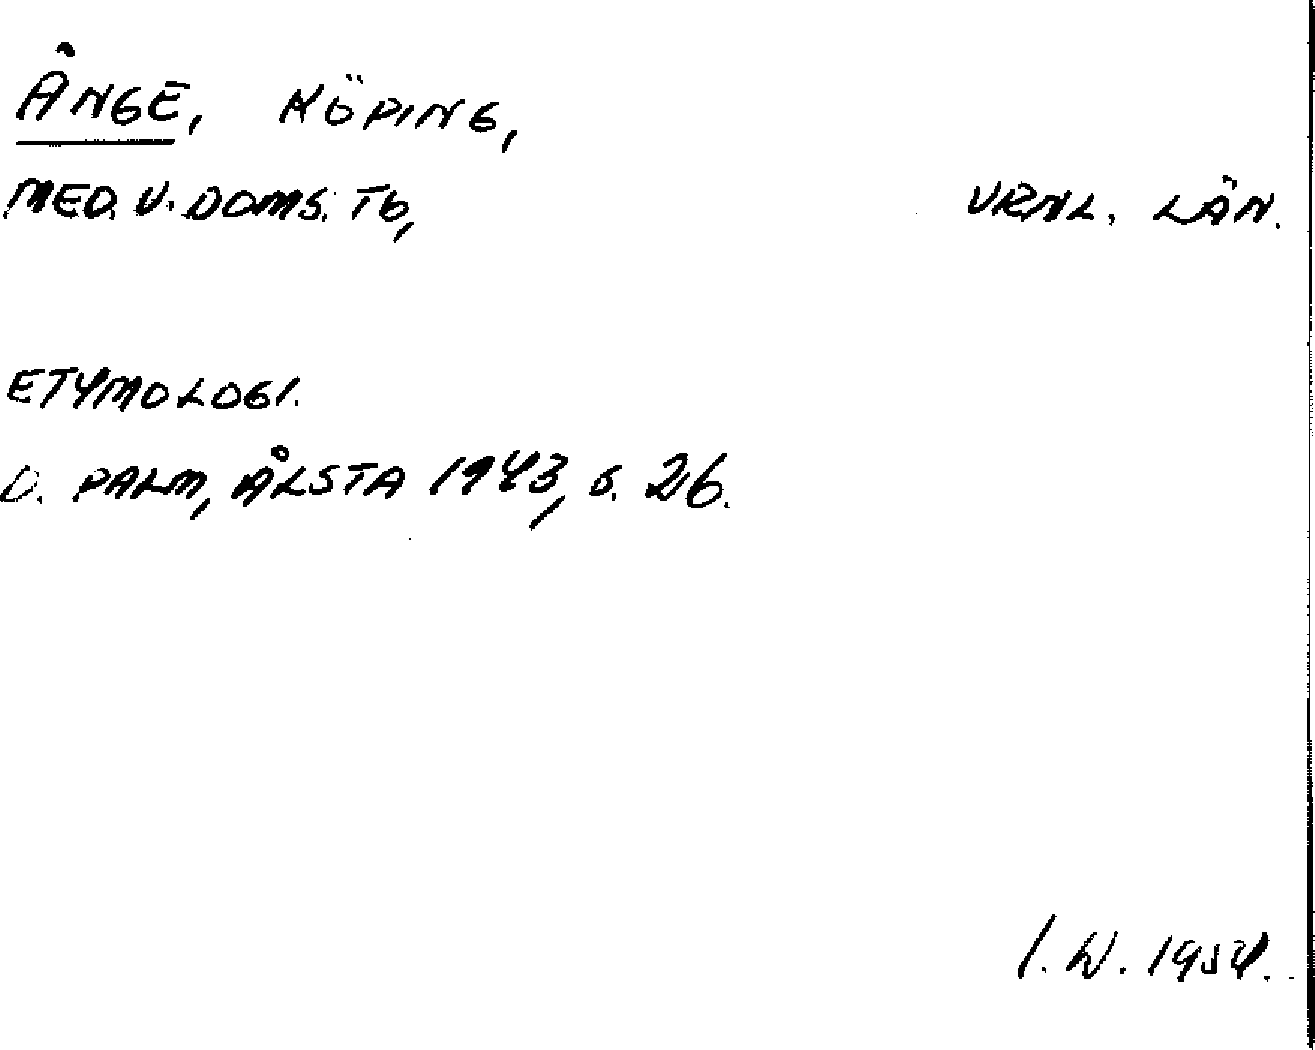 ÅNGE, KÖPING,
MED. V. DOMS. TG, VRNL. LÄN.
ETYMOLOGI.
D. PALM, ÅLSTA 1943, S. 26.
I. W. 1954.